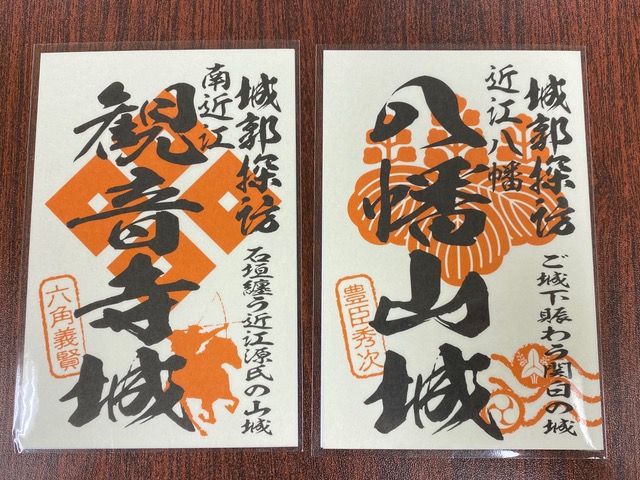 城郭探訪
南近江
観音寺城
石垣纏う近江源氏の山城
六角義賢
城郭探訪
近江八幡
八幡山城
ご城下賑わう関白の城
豊臣秀次